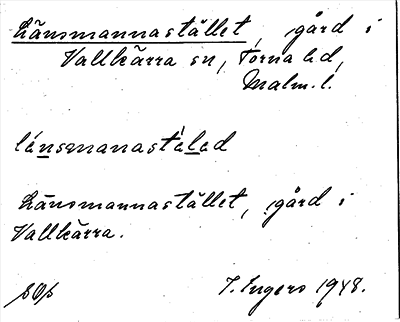 Länsmannastället, gård i
Vallkärra sn, Torna hd,
Malm. l.
länsmanastäləd
Länsmannastället, gård i
Vallkärra.
I. Ingers 1948.